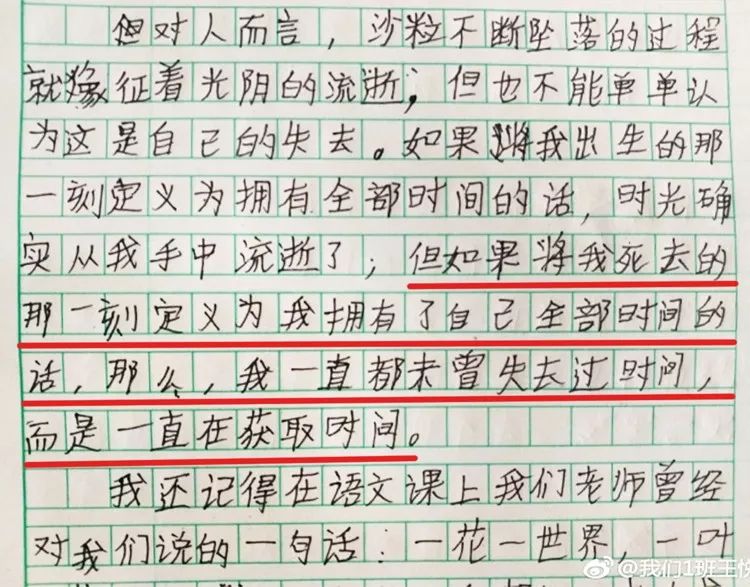 但对人而言，沙粒不断坠落的过程
就像征着光阴的流逝；但也不能单单认
为这是自己的失去。如果将我出生的那
一刻定义为拥有全部时间的话，时光确
实从我手中流逝了；但如果将我死去的
那一刻定义为我拥有了自己全部时间的
话，那么，我一直都未曾失去过时间，
而是一直在获取时间。
我还记得在语文课上我们老师曾经
对我们说的一句话：一花一世界，一叶
@我们1班王悦